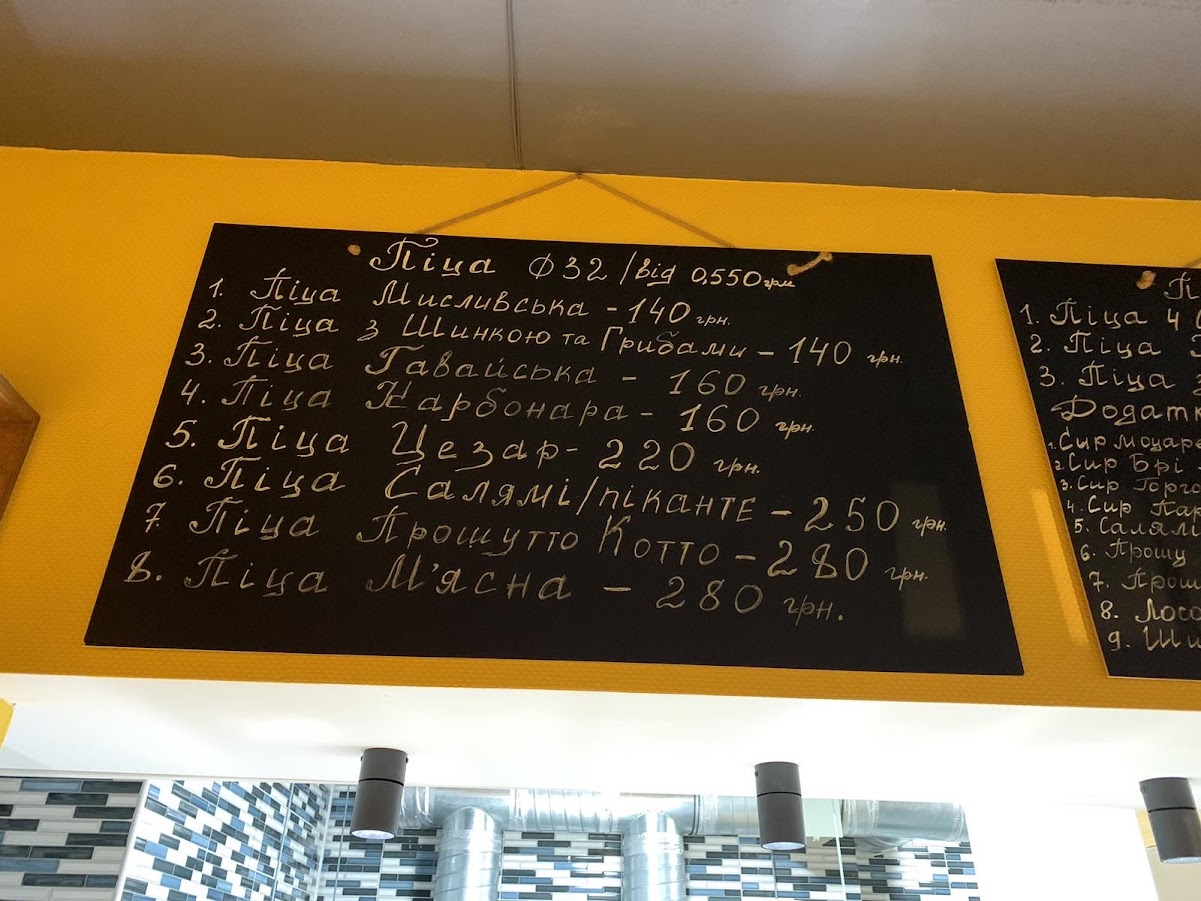 Піца Ø 32 / від 0,550 грм
1. Піца Мисливська - 140 грн.
2. Піца з Шинкою та Грибами - 140 грн.
3. Піца Гавайська - 160 грн.
4. Піца Карбонара - 160 грн.
5. Піца Цезар - 220 грн.
6. Піца Салямі/піканте - 250 грн.
7 Піца Прошутто Котто - 280 грн.
8. Піца М'ясна - 280 грн.
1. Піца 4
2. Піца
3. Піца
1. Сир
2. Сир Брі
3. Сир
4. Сир
5. Салямі
6.
7.
8.
9.